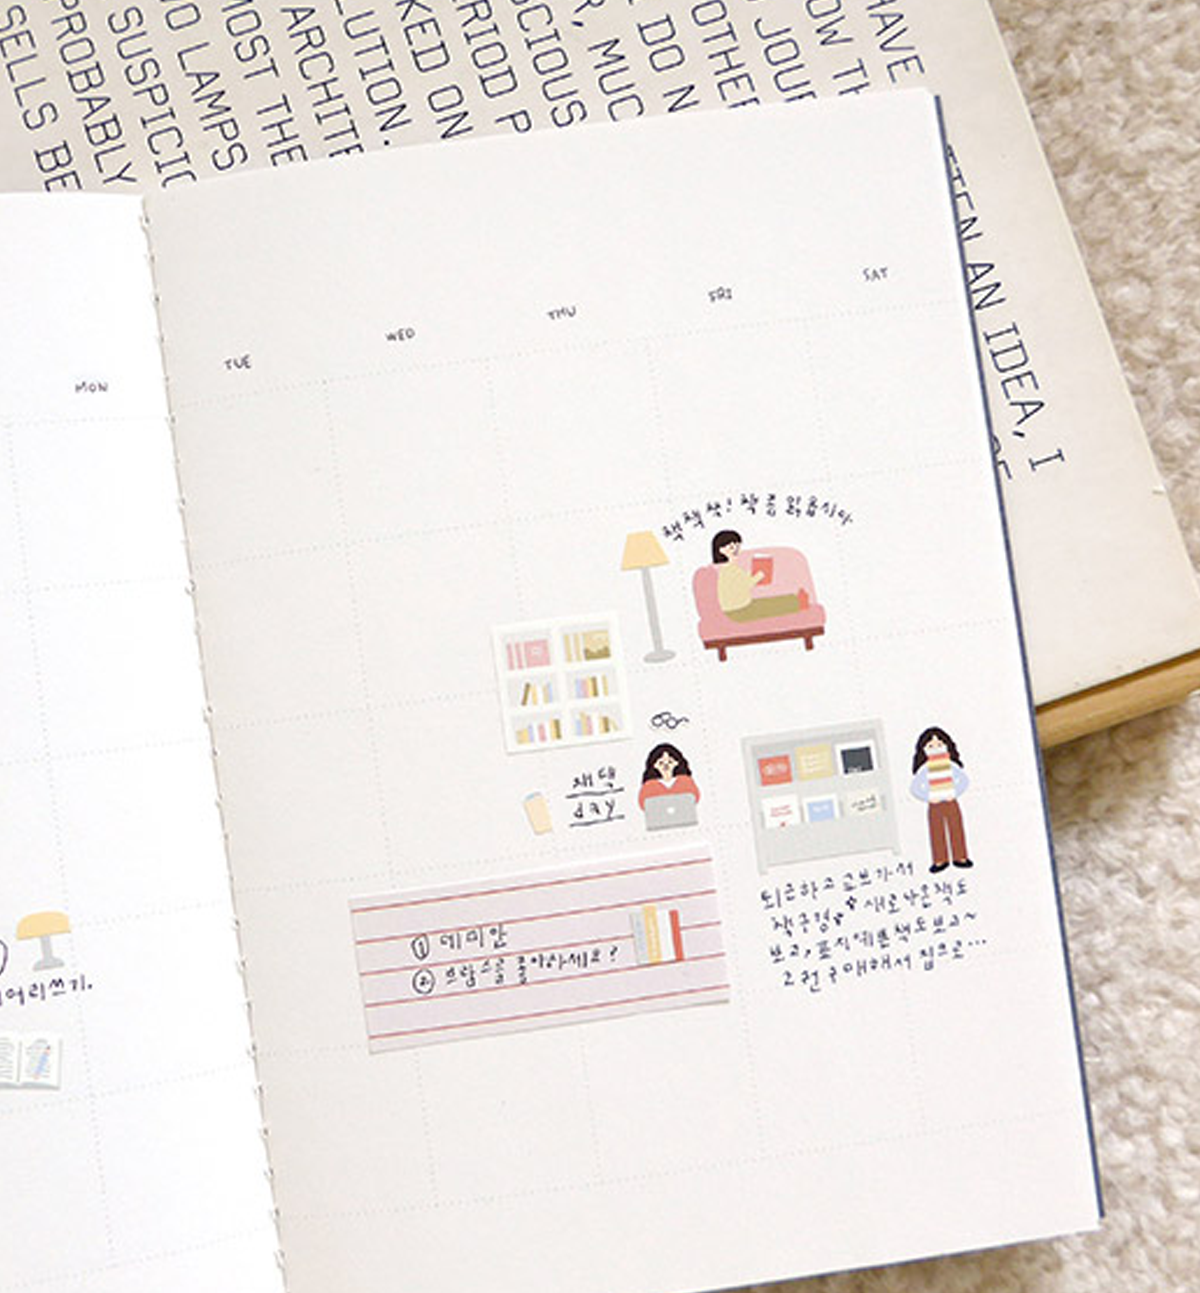 HAVE
OW TH
JOUR
OTHER
DO N
R, MUC
SCIOUS
RIOD P
KED ON
LUTION.
ARCHITE
MOST THE
NO LAMPS
SUSPICIO
PROBABLY
SELLS BE
TTEN AN IDEA, I
MON
TUE
WED
THU
FRI
SAT
책책책! 책 좀 읽읍시다
재택
day
① 데미안
② 브람스를 좋아하세요?
퇴근하고 교보가서
책구경 새로나온책도
보고, 표지예쁜책도보고~
그런 구매해서 집으로...
어리쓰기.